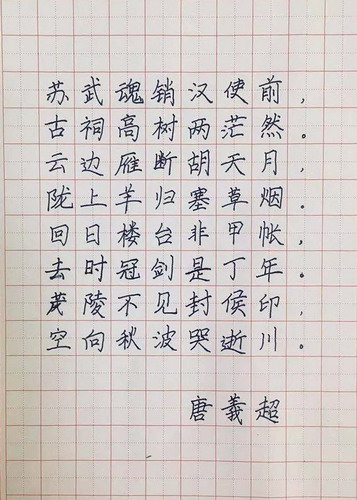 苏武魂销汉使前，
古祠高树两茫然。
云边雁断胡天月，
陇上羊归塞草烟。
回日楼台非甲帐，
去时冠剑是丁年。
茂陵不见封侯印，
空向秋波哭逝川。
唐義超